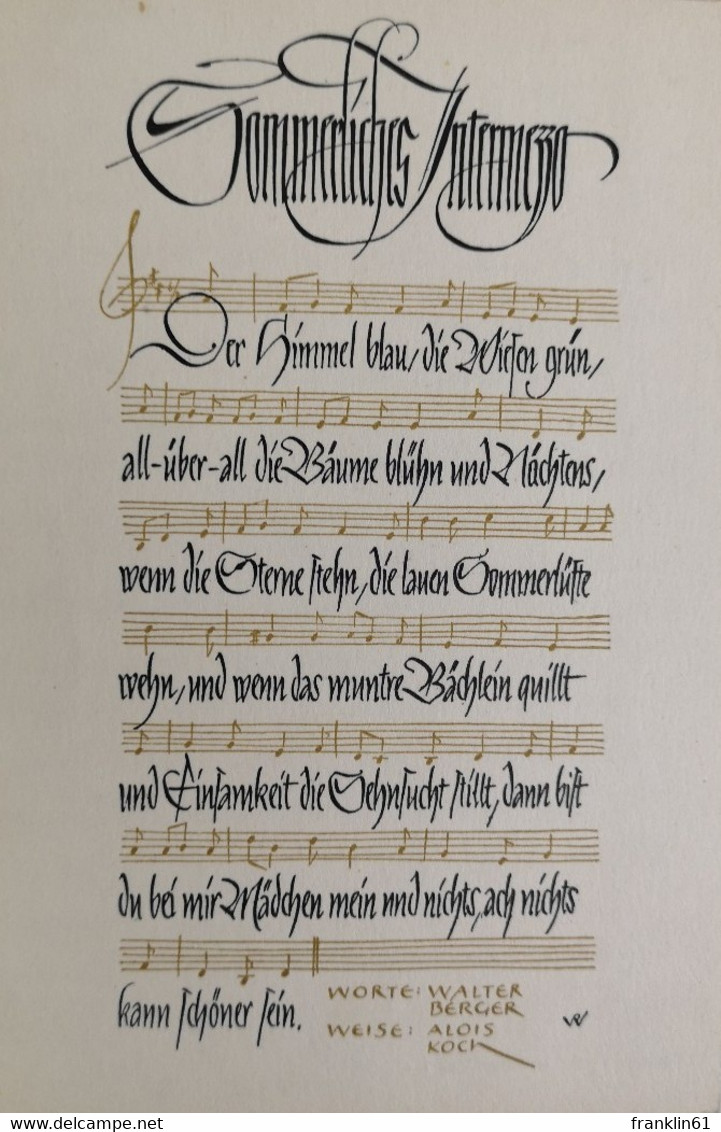 Sommerliches Intermezzo
Der Himmel blau, die Wiesen grün,
all-über-all die Bäume blühn und Nächtens,
wenn die Sterne stehn, die lauen Sommerlüfte
wehn, und wenn das muntre Bächlein quillt
und Einsamkeit die Sehnsucht stillt, dann bist
du bei mir Mädchen mein und nichts, ach nichts
kann schöner sein.
WORTE: WALTER
BERGER
WEISE: ALOIS
KOCH
www.delcampe.net
franklin61